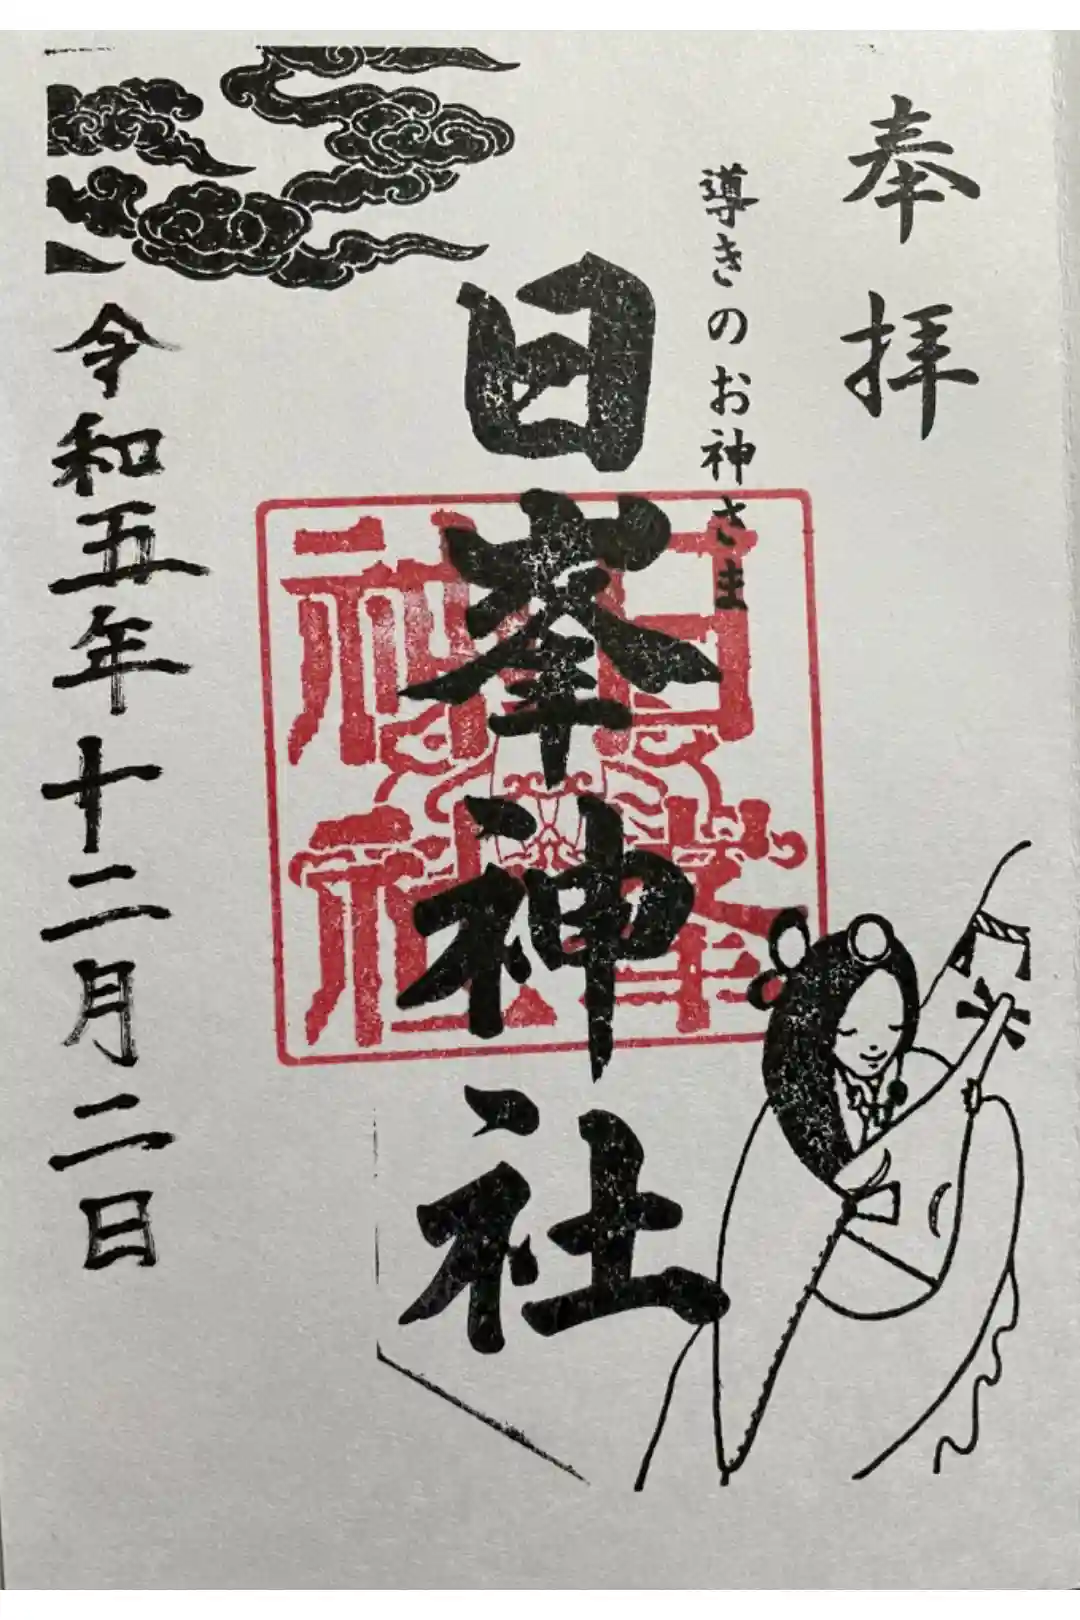 奉拝
導きのお神さま
日峯神社
日峯神社
令和五年十二月二日